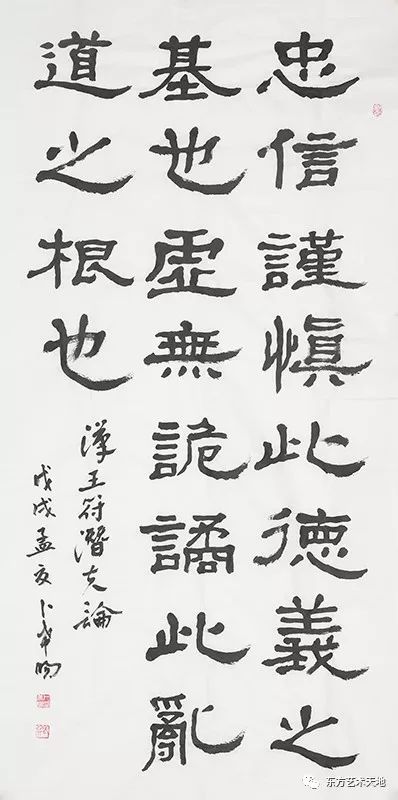 忠信謹慎此德義之
基也虛無詭譎此亂
道之根也
漢王符潛夫論
戊戌孟夏卜希旸
东方艺术天地